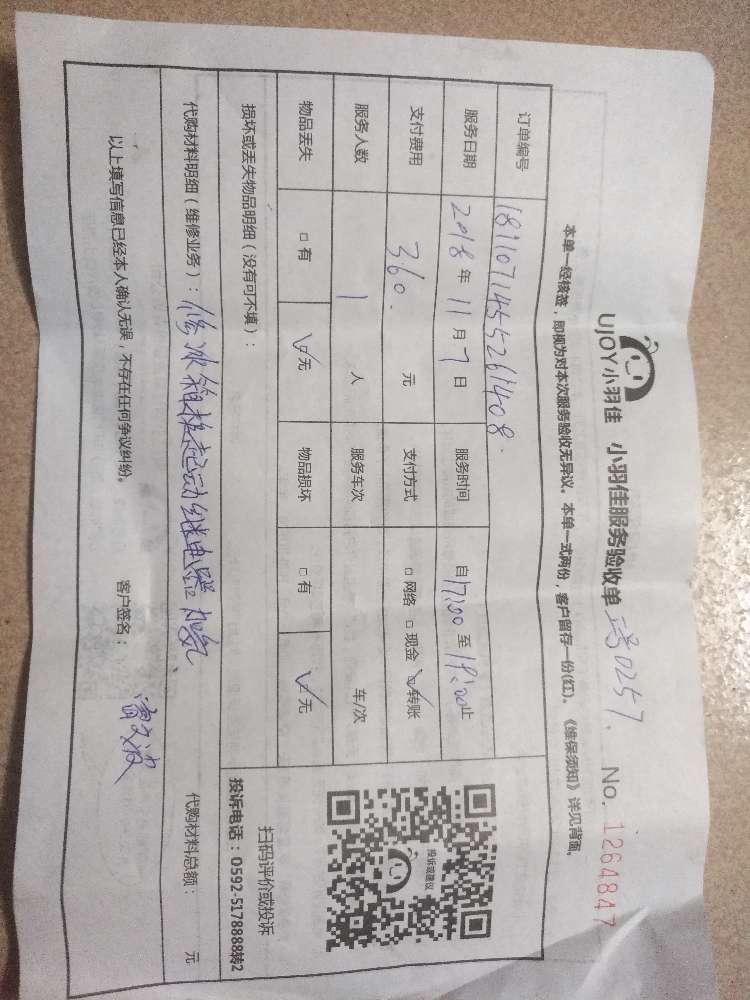 UJOY小羽佳 小羽佳服务验收单 No. 1264847
本单一经核签，即视为对本次服务验收无异议。本单一式两份，客户留存一份(红)。《维保须知》详见背面。
订单编号 1811071455261408.
服务日期 2018 年 11 月 7 日 服务时间 自 17:00 至 19:00 止
支付费用 360. 元 支付方式 □ 网络 □ 现金 ☑ 转账
服务人数 1 人 服务车次 车/次
物品丢失 □ 有 ☑ 无 物品损坏 □ 有 ☑ 无
损坏或丢失物品明细（没有可不填）：
代购材料明细（维修业务）：修冰箱换起动继电器 加氟 代购材料总额： 元
以上填写信息已经本人确认无误，不存在任何争议纠纷。 客户签名：
投诉或建议
扫码评价或投诉
投诉电话：0592-5178888转2